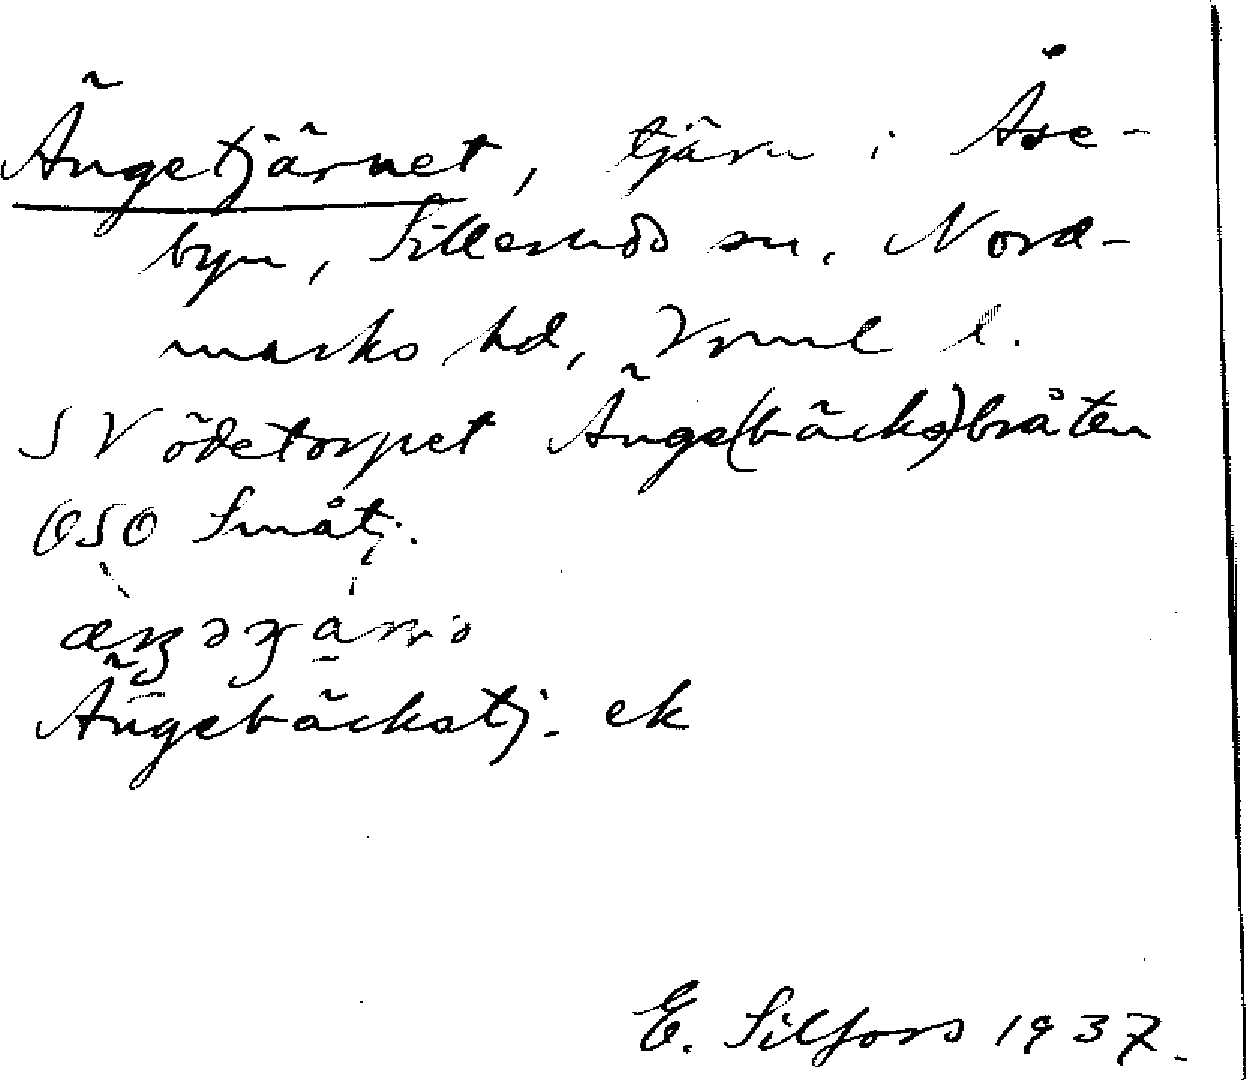 Ängetjärnet, tjärn i Åse-
byn, Silleruds sn. Nord-
marks hd, Vrml l.
SV ödetorpet Änge(bäcks)bråten
OSO Småtj.
Ängebäckstj. ek
E. Silfors 1937.